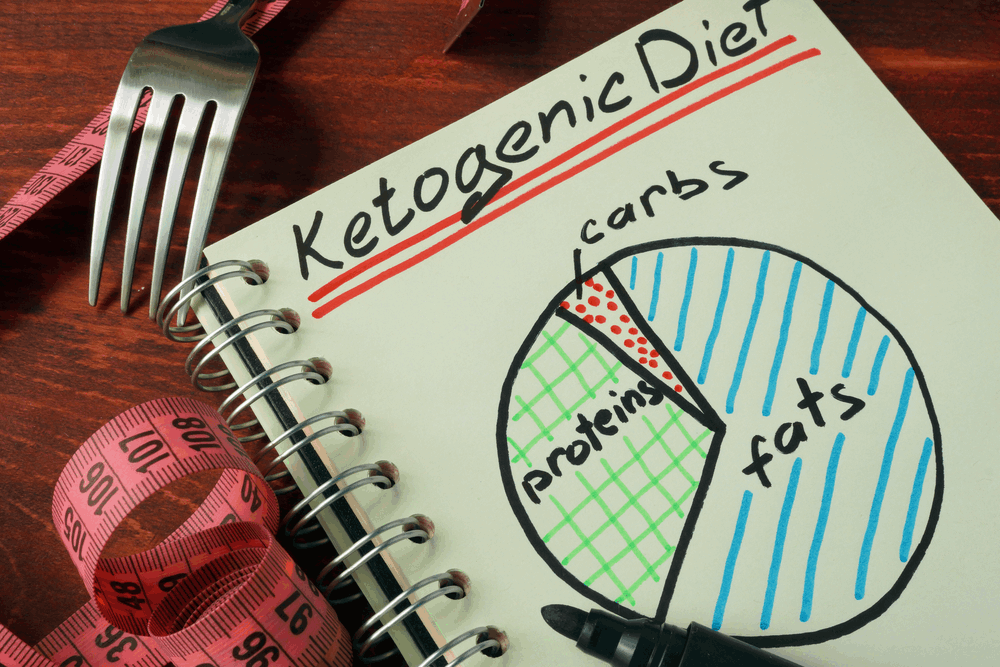 Ketogenic Diet
carbs
proteins
fats
107
108
106
105
40
48
49
36
97
96